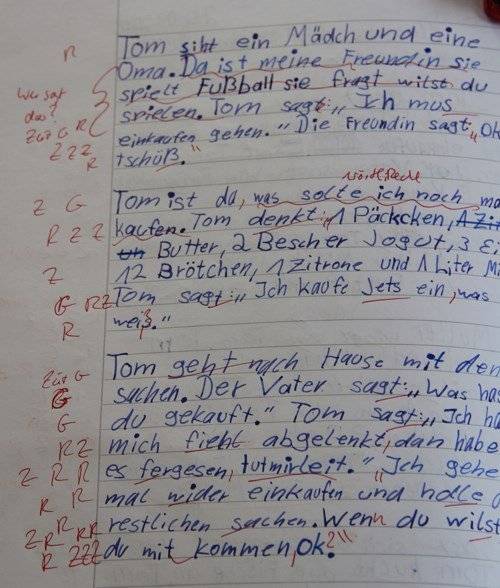 R
Tom siht ein Mädch und eine
Oma. Da ist meine Freundin sie
Wer sagt das?
spielt Fußball sie fragt wilst du
spielen. Tom sagt: „Ich mus
Züt G R
einkaufen gehen." Die Freundin sagt „Ok
ZZZ R
tschüß."
wörtl. Rede
Z G
Tom ist da, was solte ich noch ma
R Z Z
kaufen. Tom denkt: „1 Päckcken, 1 Zi
Butter, 2 Bescher Jogut, 3 E
Z
12 Brötchen, 1 Zitrone und 1 Liter Mi
G RZ
Tom sagt: „Ich kaufe Jets ein, was
R
weiß."
Tom geht nach Hause mit den
Züt G
G
sachen. Der Vater sagt: „Was has
G
du gekauft." Tom sagt: „Ich ha
RZ
mich fiehl abgelenkt, dan habe
Z R R
es fergesen, tutmirleit." „Ich gehe
R R
mal wider einkaufen und holle d
Z R R RR
restlichen sachen. Wenn du wilst
R ZZZ
du mit kommen, Ok?"